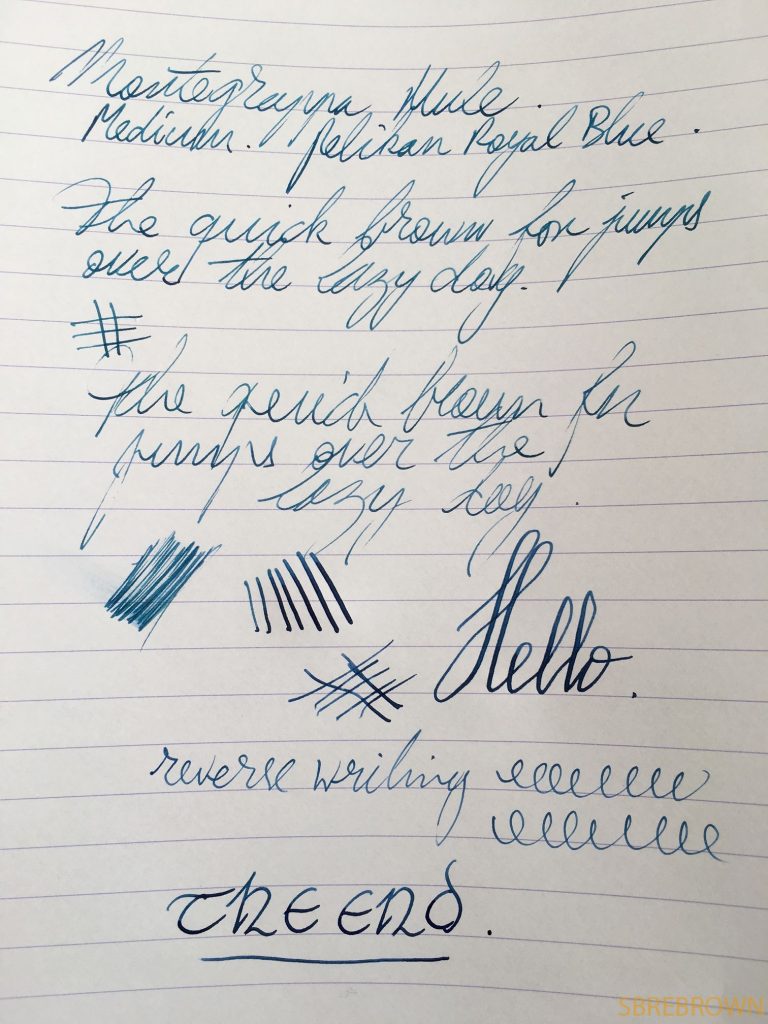 Montegrappa Mule.
Medium. Pelikan Royal Blue.
The quick brown fox jumps
over the lazy dog.
The quick brown fox
jumps over the
lazy dog.
Hello.
reverse writing
THE END.
SBREBROWN